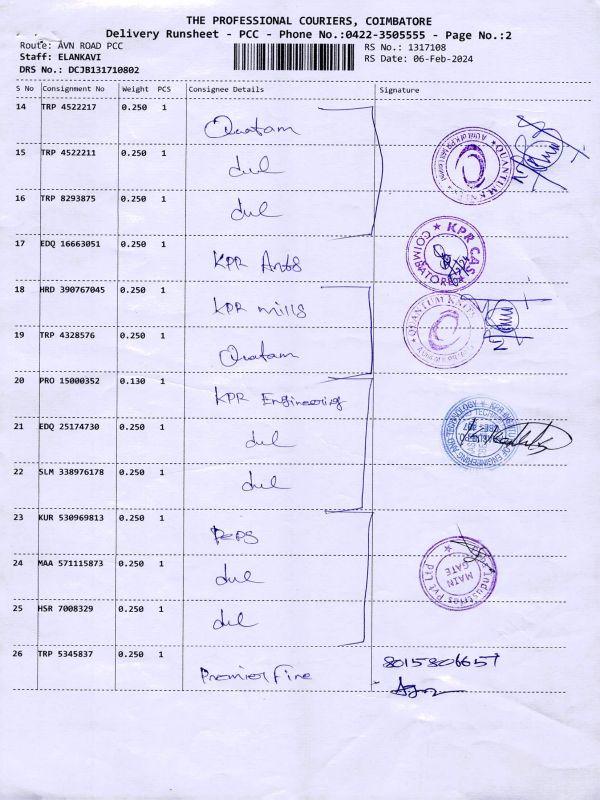 THE PROFESSIONAL COURIERS, COIMBATORE
Delivery Runsheet - PCC - Phone No.:0422-3505555 - Page No.:2
Route: AVN ROAD PCC
RS No.: 1317108
Staff: ELANKAVI
RS Date: 06-Feb-2024
DRS No.: DCJB131710802
S No Consignment No Weight PCS Consignee Details Signature
14 TRP 4522217 0.250 1 Quatam
15 TRP 4522211 0.250 1 dul
QUANTUM KNITS
16 TRP 8293875 0.250 1 dul
17 EDQ 16663051 0.250 1 KPR Arts
KPR CAS
COIMBATORE
18 HRD 390767045 0.250 1 KPR mills
QUANTUM KNITS
19 TRP 4328576 0.250 1 Quatam
20 PRO 15000352 0.130 1 KPR Engineering
21 EDQ 25174730 0.250 1 dul
22 SLM 338976178 0.250 1 dul
23 KUR 530969813 0.250 1 PEPS
24 MAA 571115873 0.250 1 dul
Industries Pvt Ltd
MAIN
GATE
25 HSR 7008329 0.250 1 dul
26 TRP 5345837 0.250 1 Premier Fine
8015806657